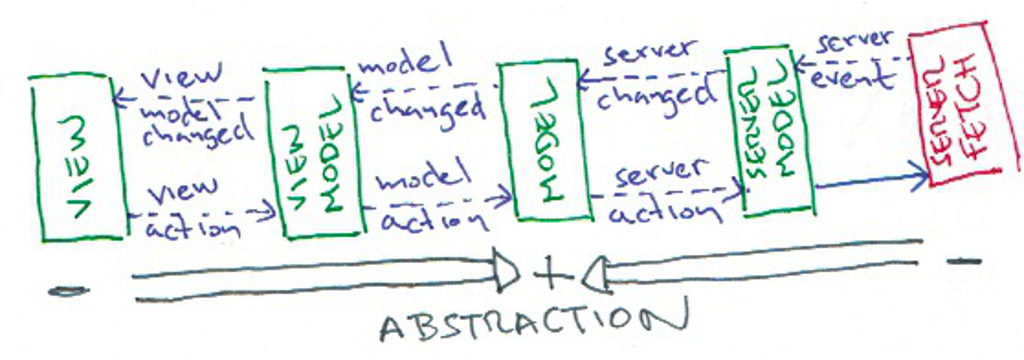 VIEW
view
model
changed
view
action
VIEW
MODEL
model
changed
model
action
MODEL
server
changed
server
action
SERVER
MODEL
server
event
SERVER
FETCH
- + -
ABSTRACTION